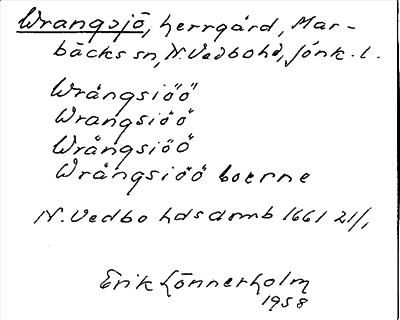 Wrangsjö, herrgård, Mar-
bäcks sn, N. Vedbo hd, Jönk. l.
Wrångsiöö
Wrangsiöö
Wrångsiöö
Wrångsiöö boerne
N. Vedbo hds domb 1661 21/1
Erik Lönnerholm
1958